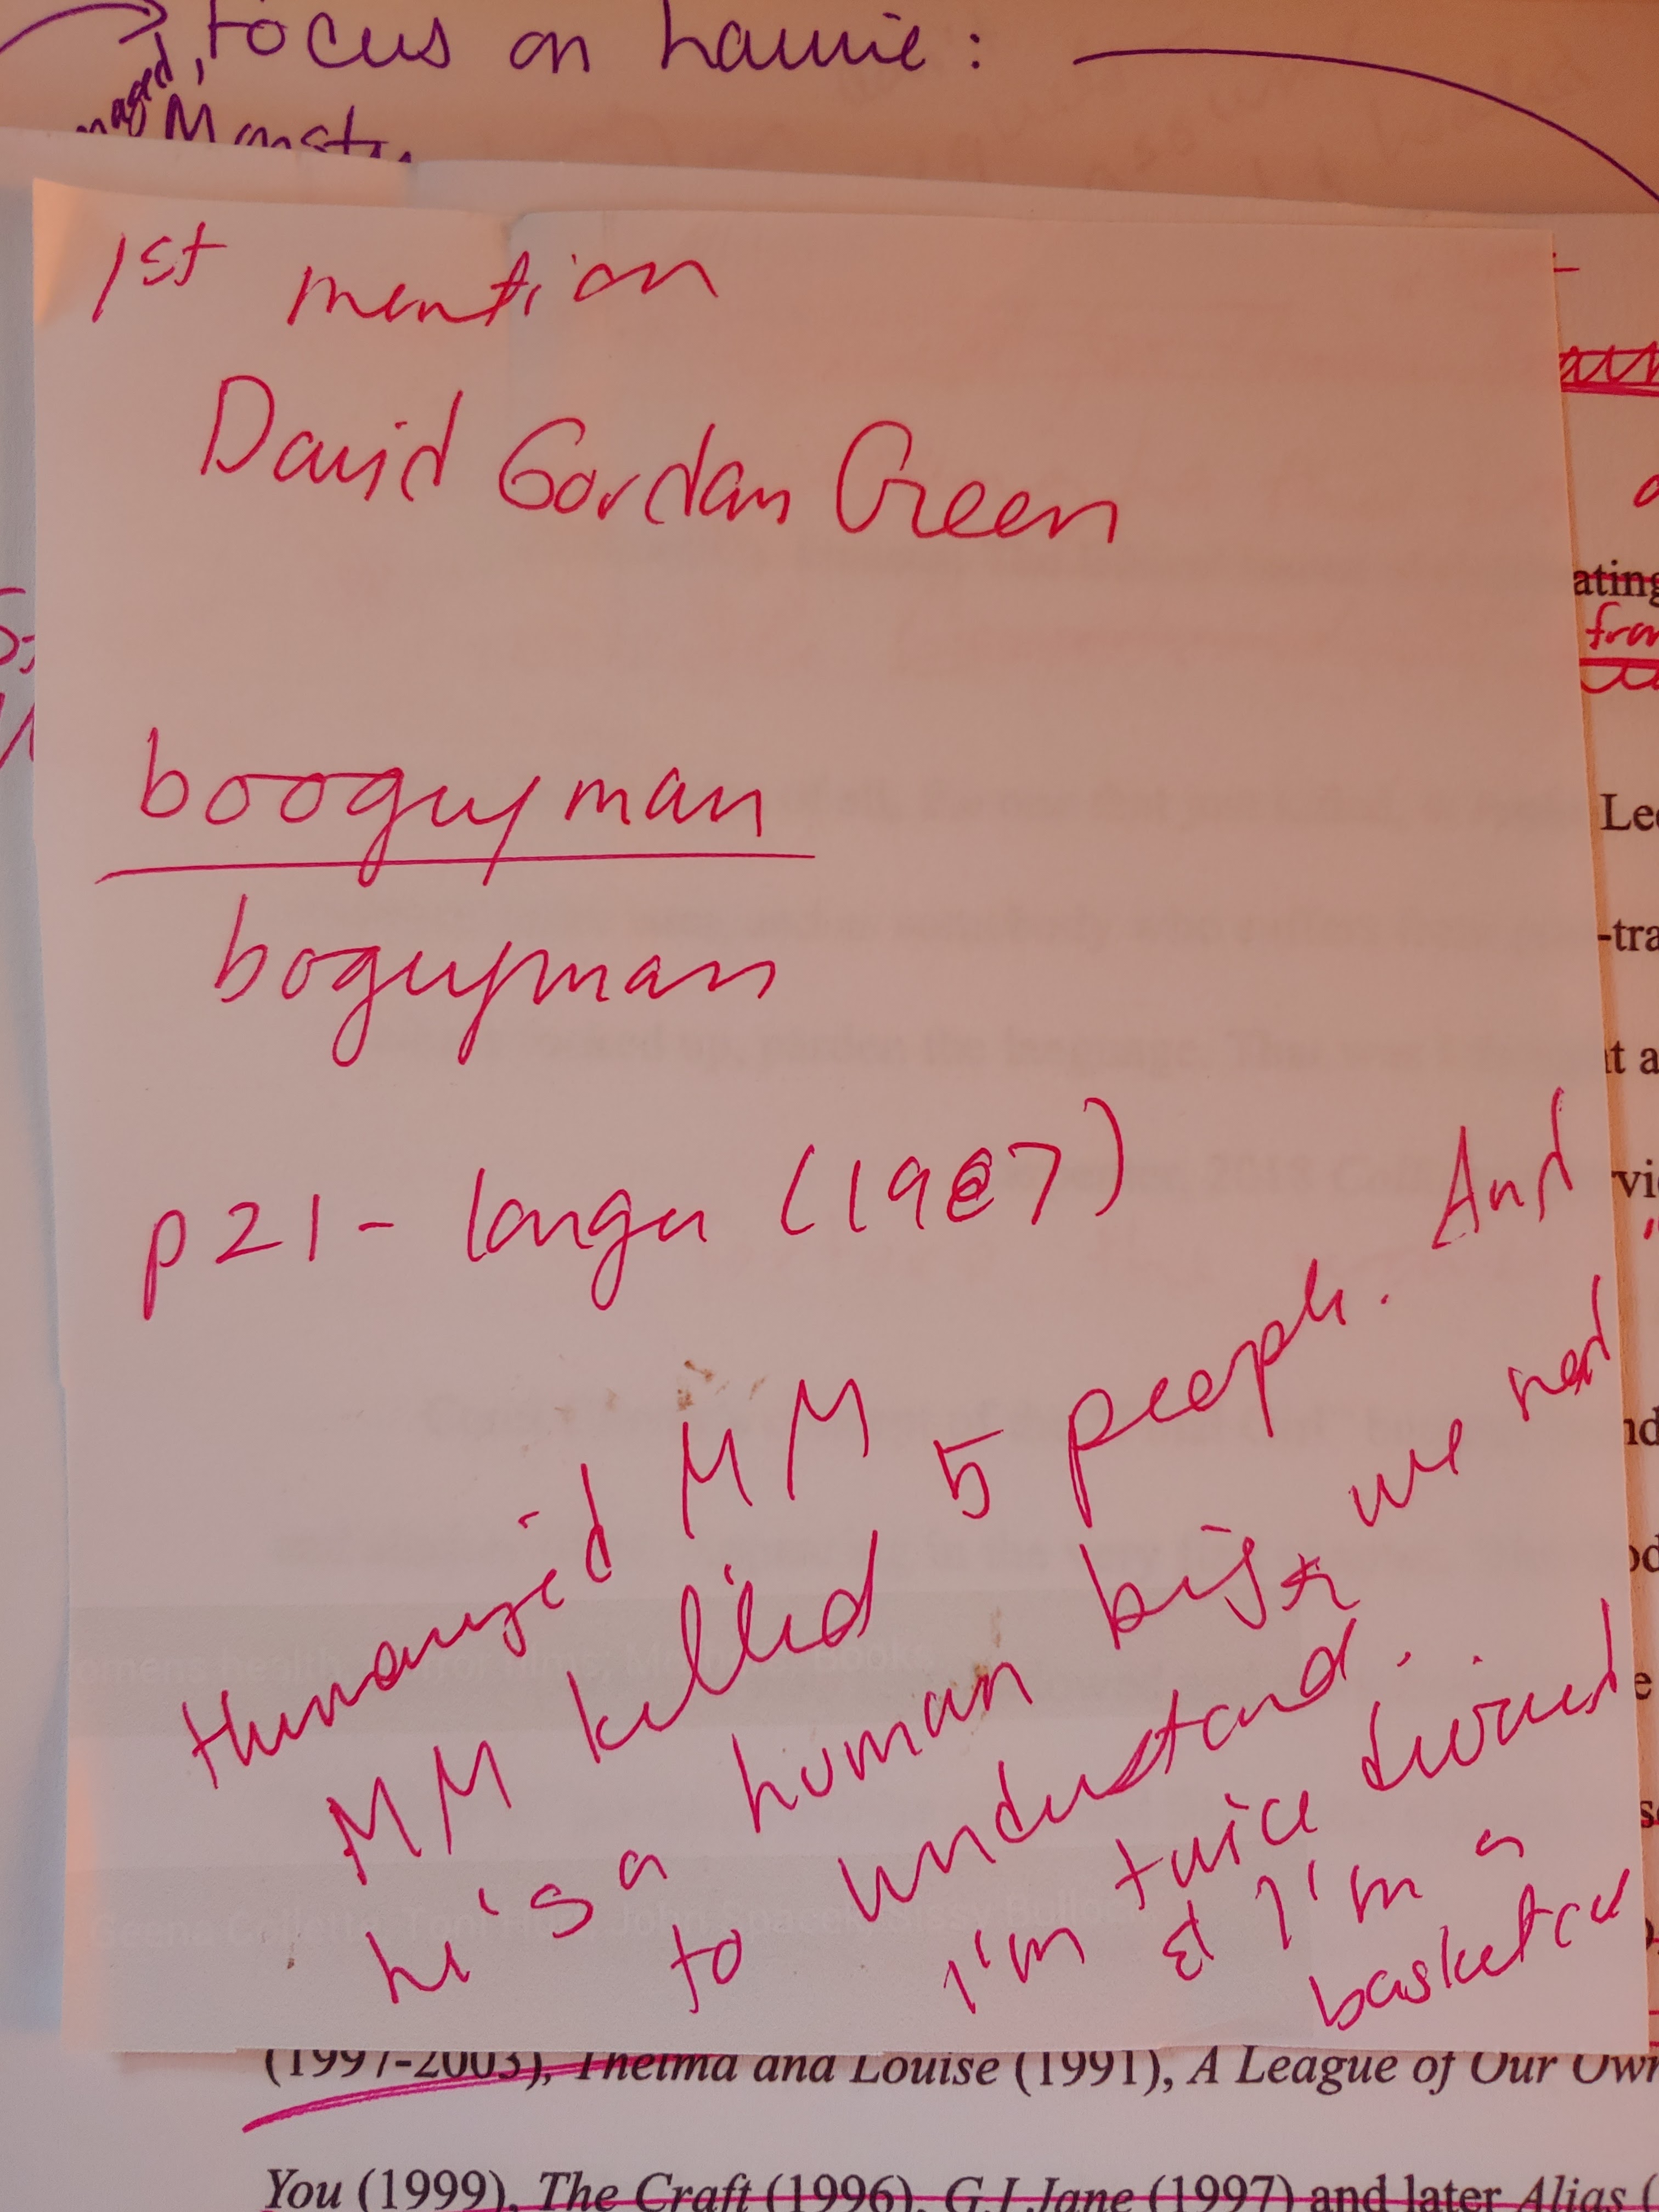 focus on Laurie:
1st mention
David Gordan Green
boogeyman
bogeyman
p21 - langer (1987)
Humanized MM
MM killed 5 people. And
he's a human being we need
to understand.
I'm twice divorced
& I'm a
basketcase
ating
fra
Lee
-tra
t a
vi
nd
od
e
(1997-2003), Thelma and Louise (1991), A League of Our Own
You (1999), The Craft (1996), G.I.Jane (1997) and later Alias (